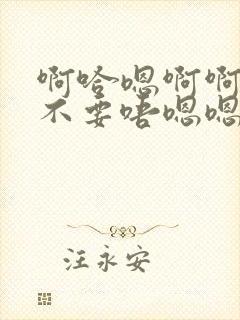 啊哈嗯啊啊
不要唔嗯嗯
汪永安